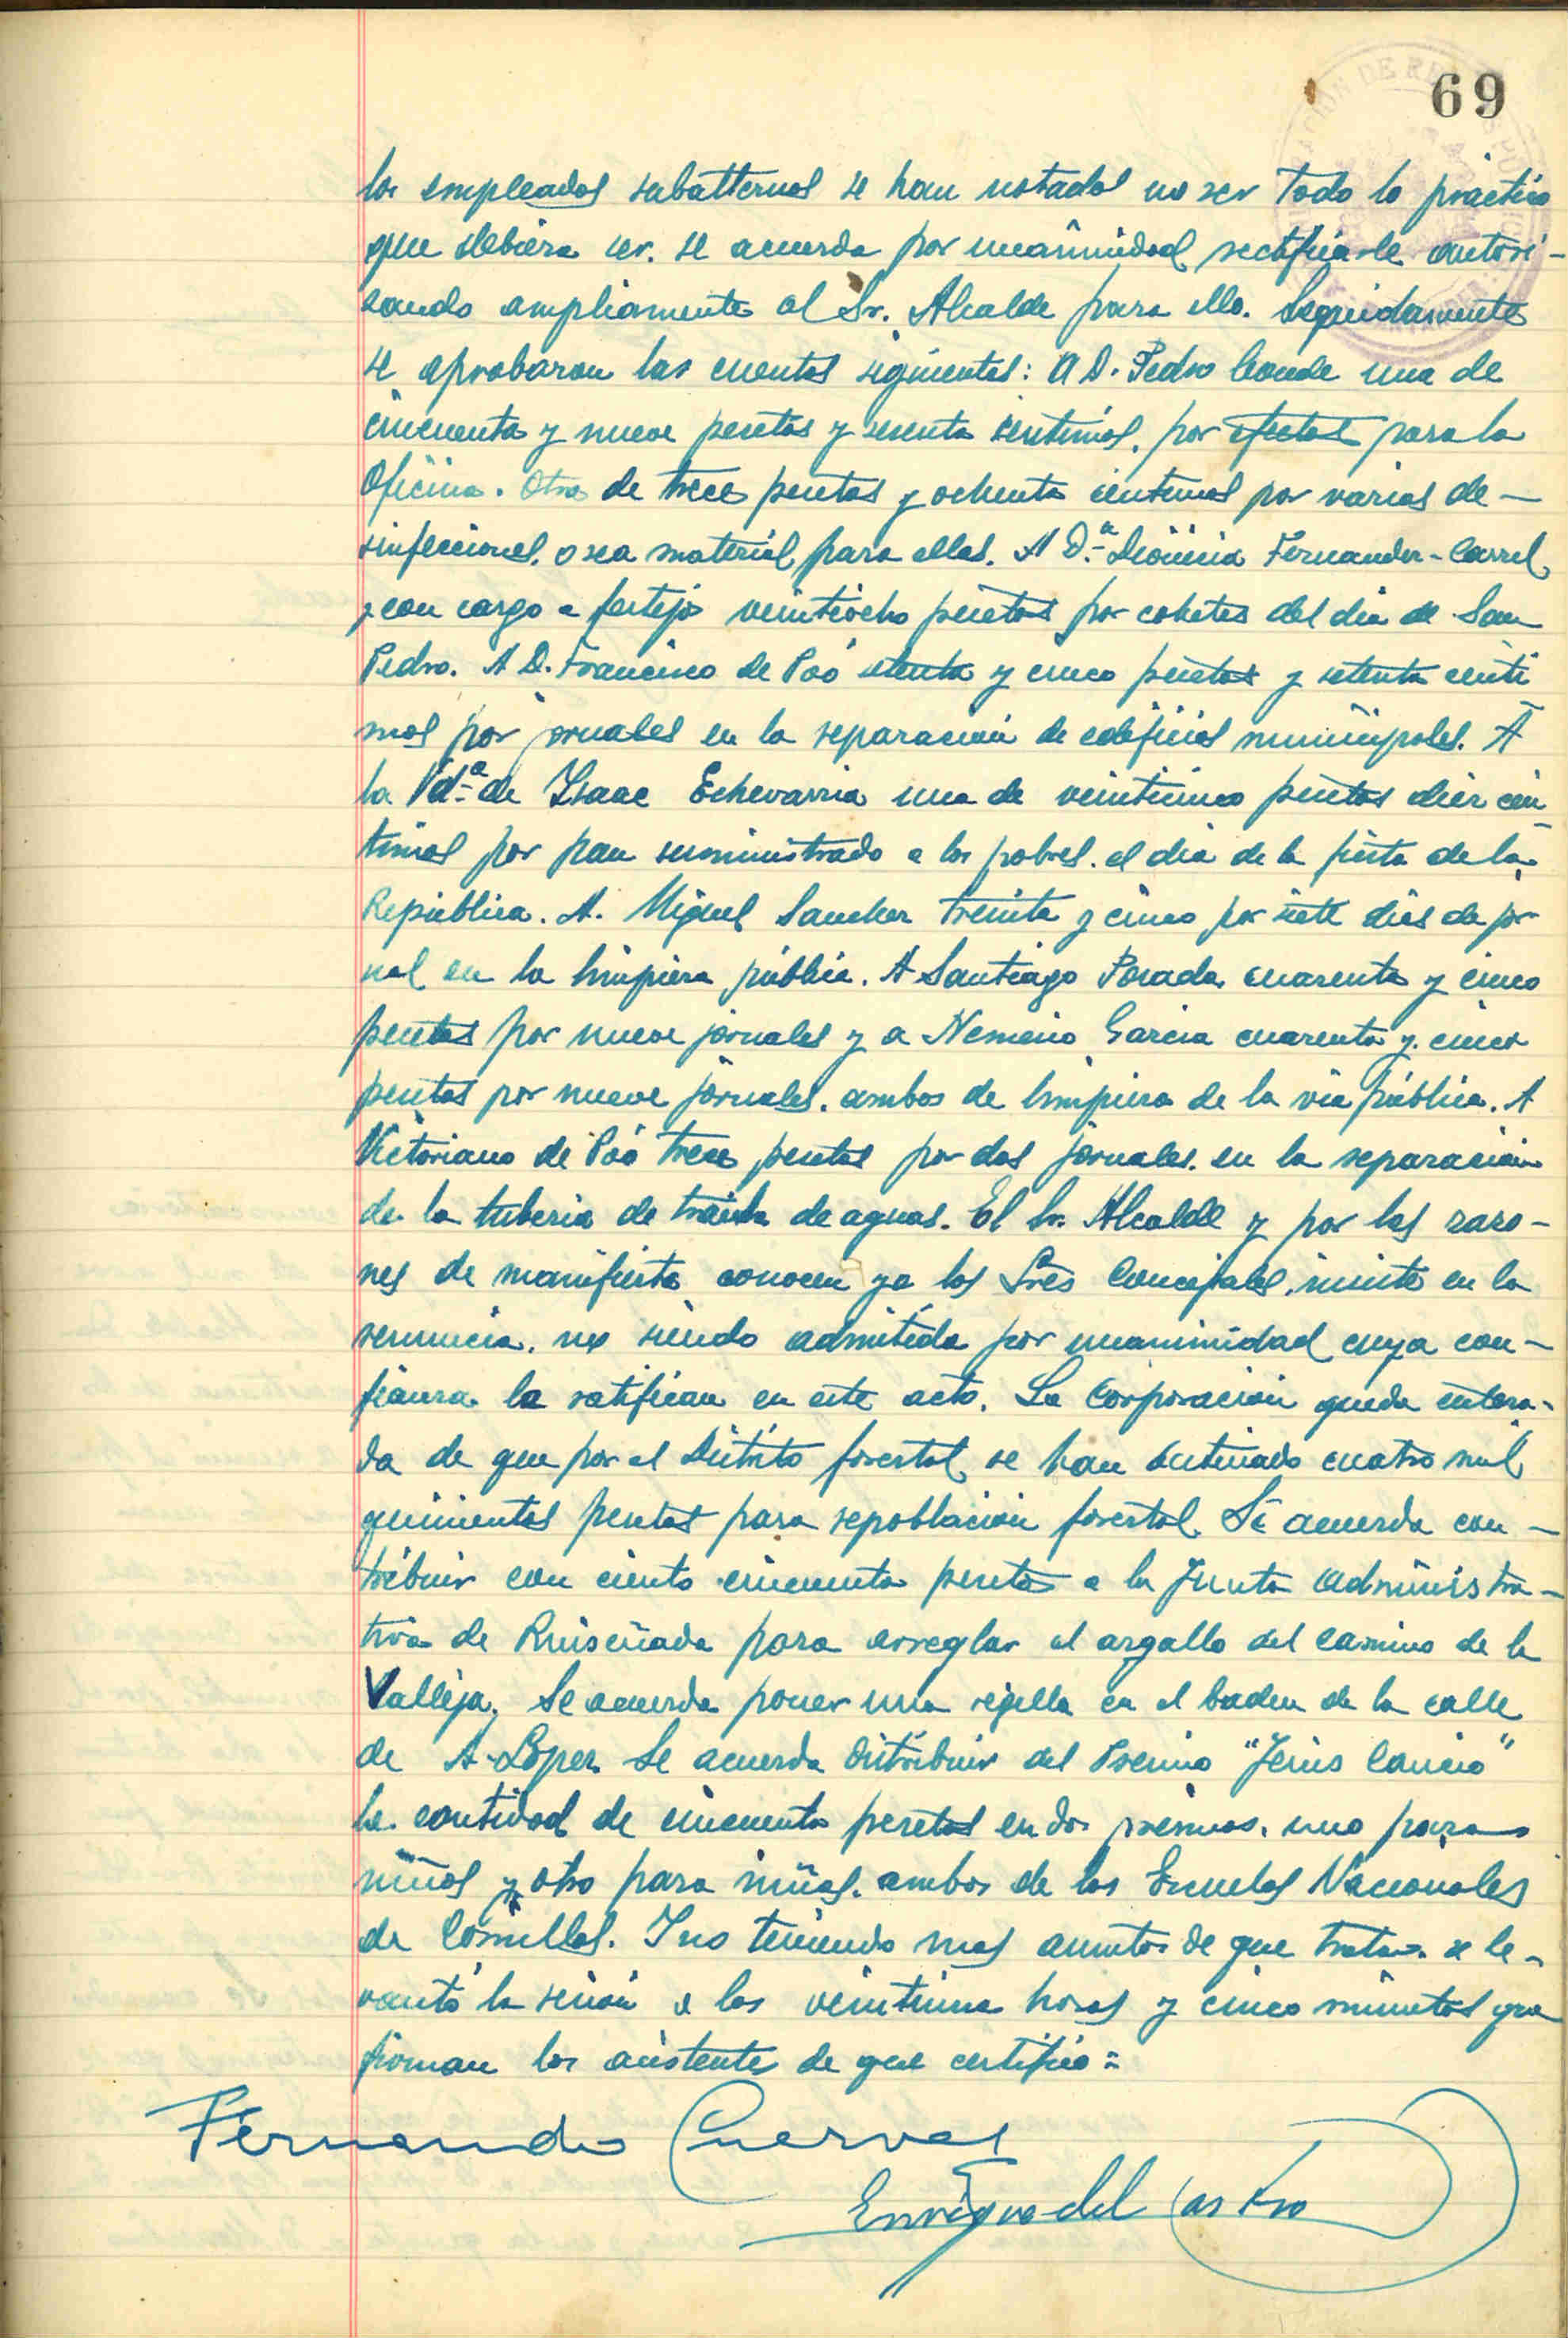 69
los empleados subalternos se han notados no ser todo lo práctico
que debiera ser. se acuerda por unanimidad rectificarle autori-
zando ampliamente al Sr. Alcalde para ello. Seguidamente
se aprobaron las cuentas siguientes: A D. Pedro Conde una de
cincuenta y nueve pesetas y sesenta centimos, por efectos para la
Oficina. Otra de trece pesetas y ochenta centimos por varias de-
sinfecciones, o sea material para ellas. A D.ª Higinia Fernandez-Carrel
y con cargo a festejos veintiocho pesetas por cohetes del dia de San
Pedro. A D. Francisco de Poó setenta y cinco pesetas y setenta centi
mos por jornales en la reparación de edificios municipales. A
la Vdª de Isaac Echevarria una de veinticinco pesetas diez cen
timos por pan suministrado a los pobres el dia de la fiesta de la
República. A. Miguel Sanchez treinta y cinco por siete dias de jor
nal en la limpieza pública. A Santiago Posada cuarenta y cinco
pesetas por nueve jornales y a Nemesio Garcia cuarenta y cinco
pesetas por nueve jornales, ambos de limpieza de la via pública. A
Victoriano de Poó trece pesetas por dos jornales en la reparación
de la tuberia de traida de aguas. El Sr. Alcalde y por las razo-
nes de manifiesto conocen ya los Sres Concejales, insiste en la
renuncia, no siendo admitida por unanimidad cuya con-
fianza la ratifican en este acto. La Corporación queda entera-
da de que por el Distrito forestal se han destinado cuatro mil
quinientas pesetas para repoblación forestal. Se acuerda con-
tribuir con ciento cincuenta pesetas a la Junta administra-
tiva de Ruiseñada para arreglar el argallo del camino de la
Valleja. Se acuerda poner una rejilla en el baden de la calle
de A. Lopez. Se acuerda distribuir del Premio "Jesus Cancio"
la cantidad de cincuenta pesetas en dos premios, uno para
niños y otro para niñas, ambos de las Escuelas Nacionales
de Comillas. Y no teniendo mas asuntos de que tratar se le-
vantó la sesión a las veintiuna horas y cinco minutos que
firman los asistentes de que certifico=
Fernando Cuervas
Enrique del Castro